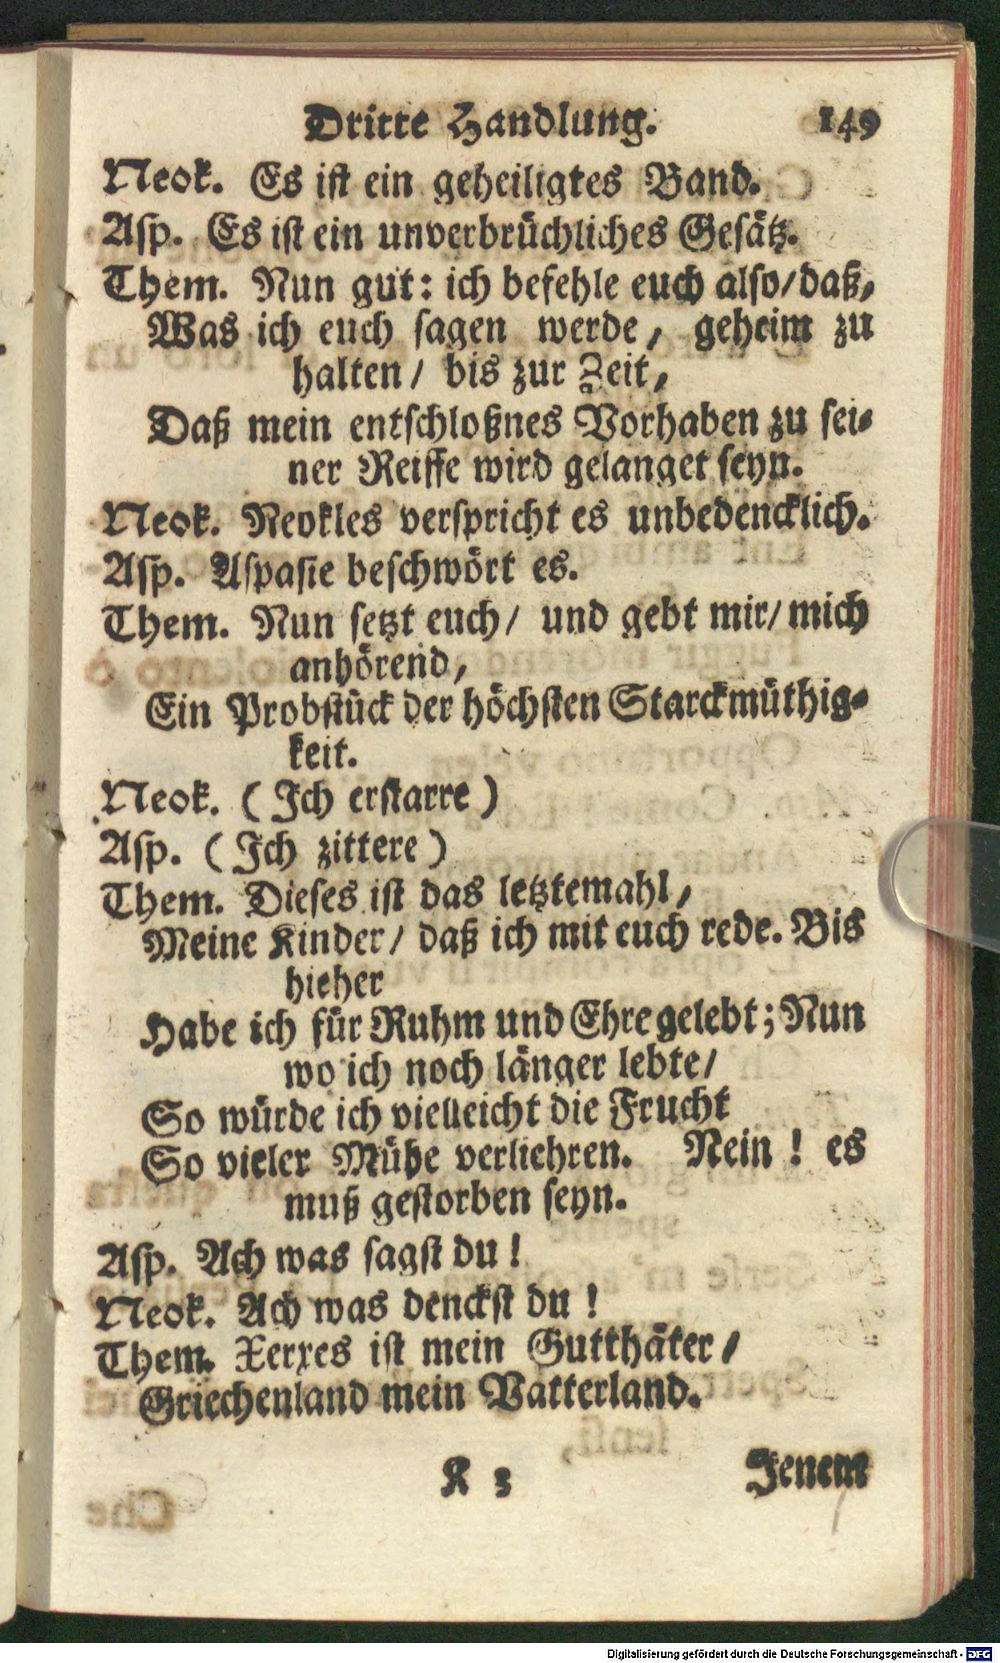 Dritte Handlung. 149
Neok. Es ist ein geheiligtes Band.
Asp. Es ist ein unverbrüchliches Gesätz.
Them. Nun gut: ich befehle euch also/daß,
Was ich euch sagen werde, geheim zu
halten/ bis zur Zeit,
Daß mein entschloßnes Vorhaben zu sei-
ner Reiffe wird gelanget seyn.
Neok. Neokles verspricht es unbedencklich.
Asp. Aspasie beschwört es.
Them. Nun setzt euch/ und gebt mir/ mich
anhörend,
Ein Probstück der höchsten Starckmüthig-
keit.
Neok. (Ich erstarre)
Asp. (Ich zittere)
Them. Dieses ist das letztemahl,
Meine Kinder/ daß ich mit euch rede. Bis
hieher
Habe ich für Ruhm und Ehre gelebt; Nun
wo ich noch länger lebte/
So würde ich vielleicht die Frucht
So vieler Mühe verliehren. Nein! es
muß gestorben seyn.
Asp. Ach was sagst du!
Neok. Ach was denckst du!
Them. Xerxes ist mein Gutthäter/
Griechenland mein Vatterland.
K 3 Jenem
Digitalisierung gefördert durch die Deutsche Forschungsgemeinschaft - DFG